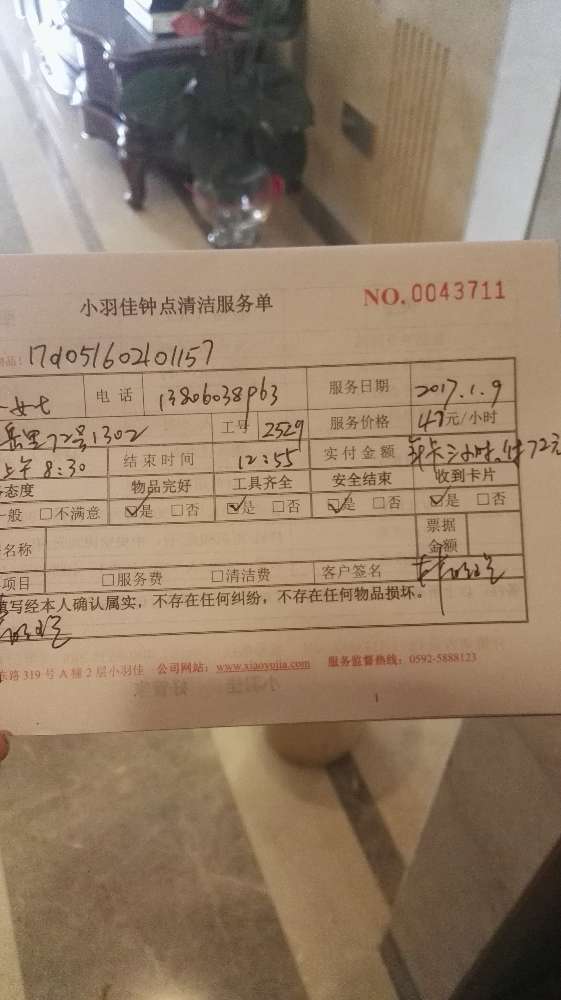 小羽佳钟点清洁服务单 NO.0043711
物品: 17d051602401157
女士 电话 13806038963 服务日期 2017.1.9
岳里72号1302 工号 2529 服务价格 47元/小时
上午8:30 结束时间 12:55 实付金额 年卡三小时, 付72元
态度 物品完好 工具齐全 安全结束 收到卡片
一般 □不满意 ☑是 □否 ☑是 □否 ☑是 □否 ☑是 □否
名称 票据金额
项目 □服务费 □清洁费 客户签名
填写经本人确认属实，不存在任何纠纷，不存在任何物品损坏。
东路319号A幢2层小羽佳 公司网站：www.xiaoyujia.com 服务监督热线：0592-5888123
1